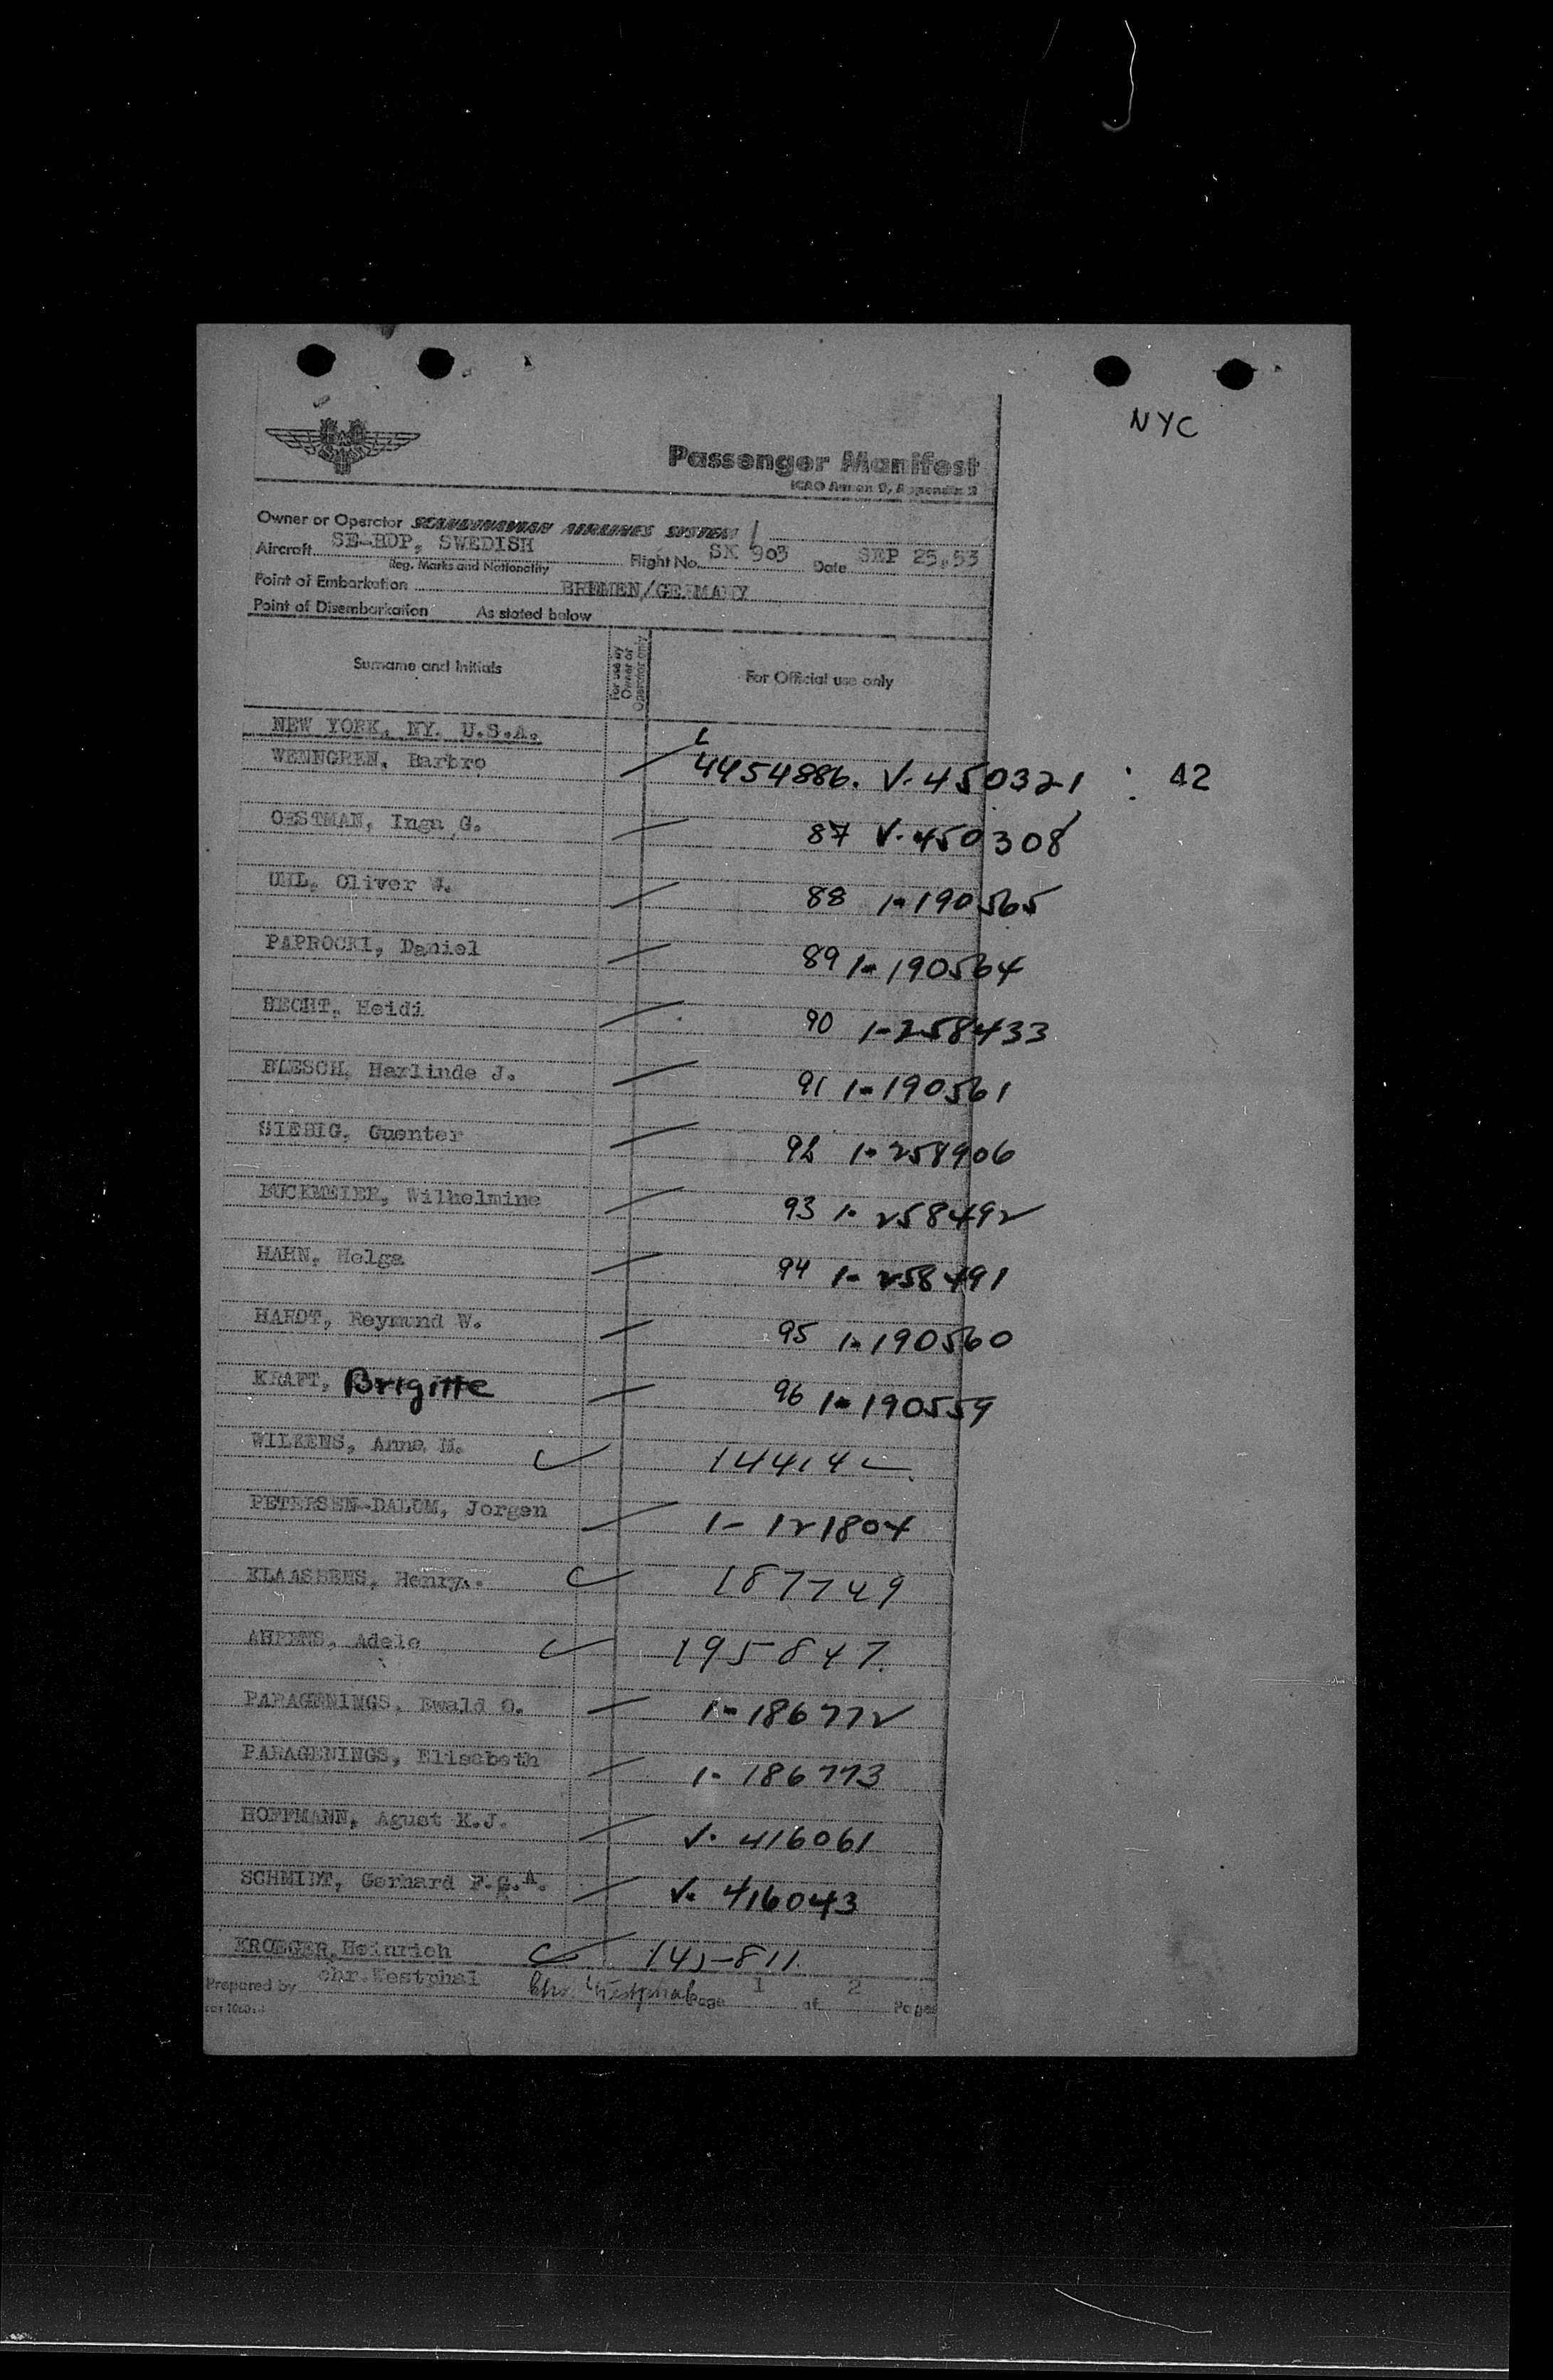 NYC
Passenger Manifest
ICAO Annex 9, Appendix 3
Owner or Operator SCANDINAVIAN AIRLINES SYSTEM
Aircraft SE-BDP, SWEDISH Flight No. SK 903 Date SEP 25,53
Reg. Marks and Nationality
Point of Embarkation BREMEN/GERMANY
Point of Disembarkation As stated below
Surname and Initials For use by Owner or Operator only For Official use only
NEW YORK, NY. U.S.A.
WENNGREN, Barbro 4454886. V-450321 : 42
OESTMAN, Inga G. 87 V-450308
UHL, Oliver W. 88 1-190565
PAPROCKI, Daniel 89 1-190564
HECHT, Heidi 90 1-258433
BLESCH, Harlinde J. 91 1-190561
SIEBIG, Guenter 92 1-258906
BUCKMEIER, Wilhelmine 93 1-258492
HAHN, Helga 94 1-258491
HARDT, Reymund W. 95 1-190560
KRAFT, Brigitte 96 1-190559
WILKENS, Anne M. 14414
PETERSEN-DALUM, Jorgen 1-121804
KLAASSENS, Henry. 187749
AHRENS, Adele 195847.
PARAGENINGS, Ewald O. 1-186772
PARAGENINGS, Elisabeth 1-186773
HOFFMANN, Agust K.J. V-416061
SCHMIDT, Gerhard F.G.A. V-416043
KROEGER, Heinrich 145-811
Prepared by chr.Westphal Chr. Westphal Page 1 of 2 Pages